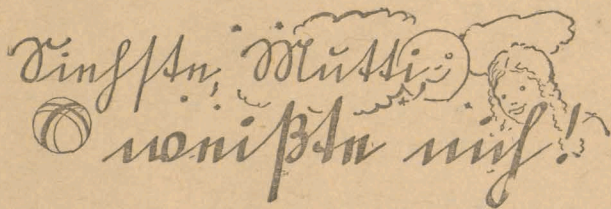 Siehste, Mutti
weißte nich!